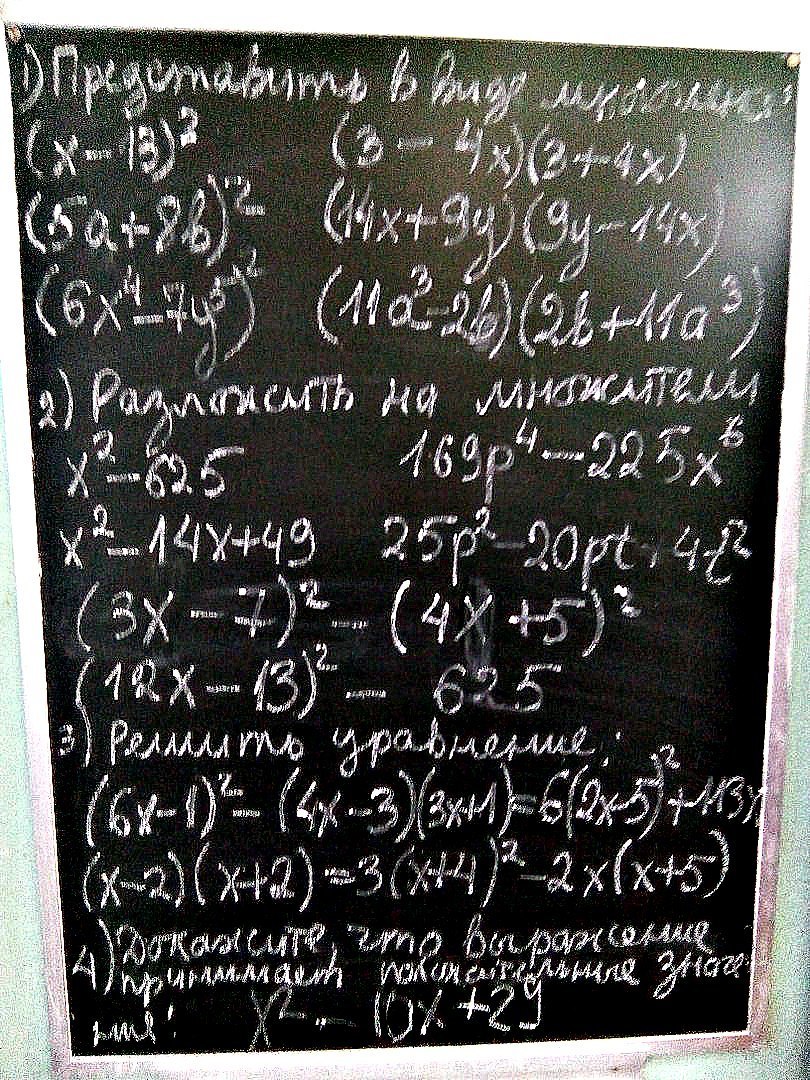 1) Представить в виде многочлена:
(x - 13)² (3 - 4x)(3 + 4x)
(5a + 8b)² (14x + 9y)(9y - 14x)
(6x⁴ - 7y³)² (11a³ - 2b)(2b + 11a³)
2) Разложить на множители
x² - 625 169p⁴ - 225x⁶
x² - 14x + 49 25p² - 20pt + 4t²
(3x - 7)² - (4x + 5)²
(12x - 13)² - 625
3) Решить уравнение:
(6x - 1)² - (4x - 3)(3x + 1) = 6(2x - 5)² + 113x
(x - 2)(x + 2) = 3(x + 4)² - 2x(x + 5)
4) Докажите, что выражение
принимает положительные значе-
ние: x² - 10x + 29